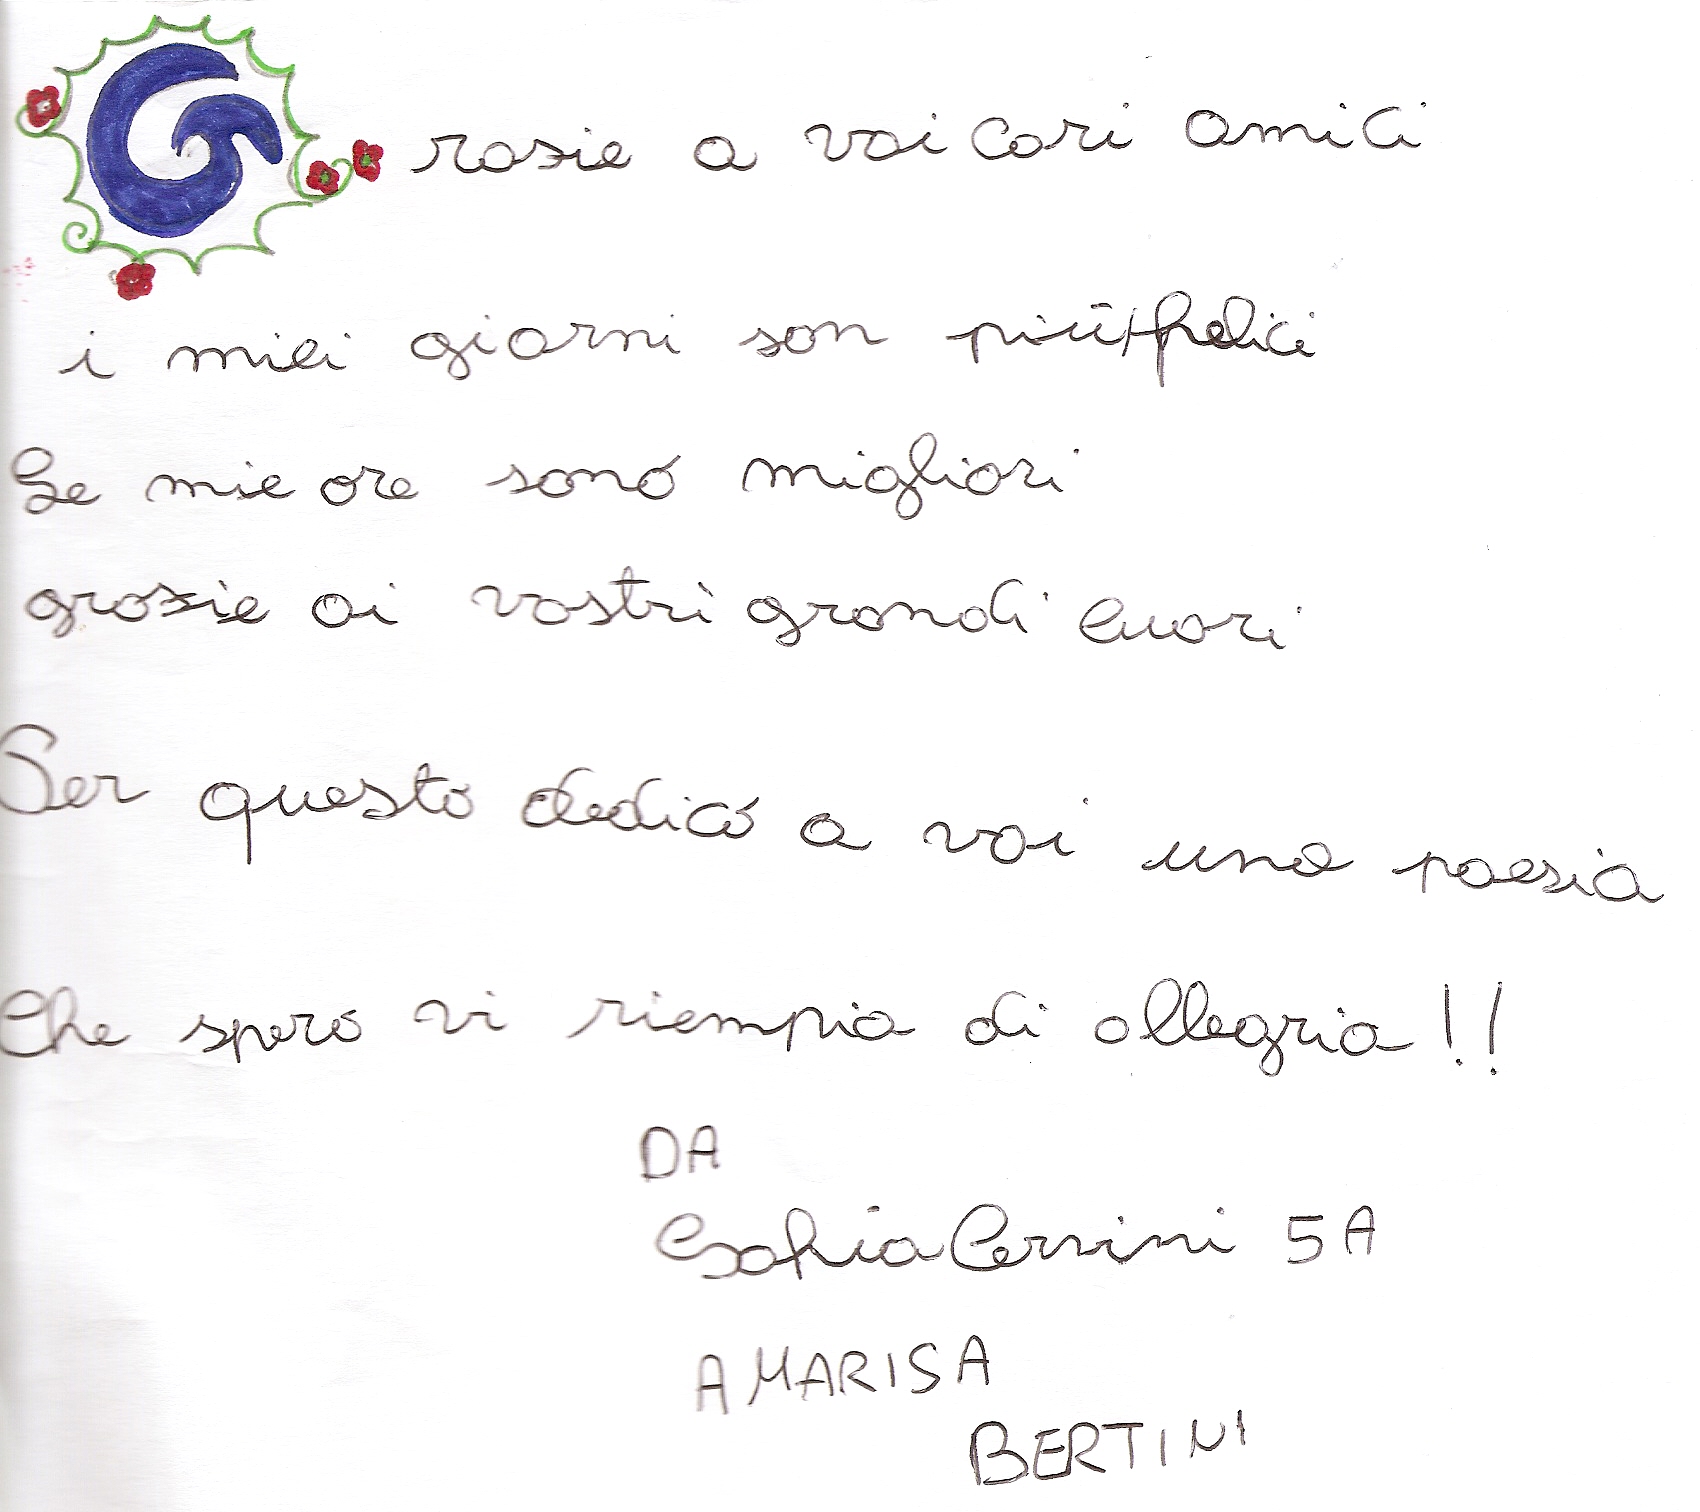 Grazie a voi cari amici
i miei giorni son più felici
Le mie ore sono migliori
grazie ai vostri grandi cuori
Per questo dedico a voi una poesia
Che spero vi riempia di allegria!!
DA
Sofia Cersini 5A
A MARISA
BERTINI